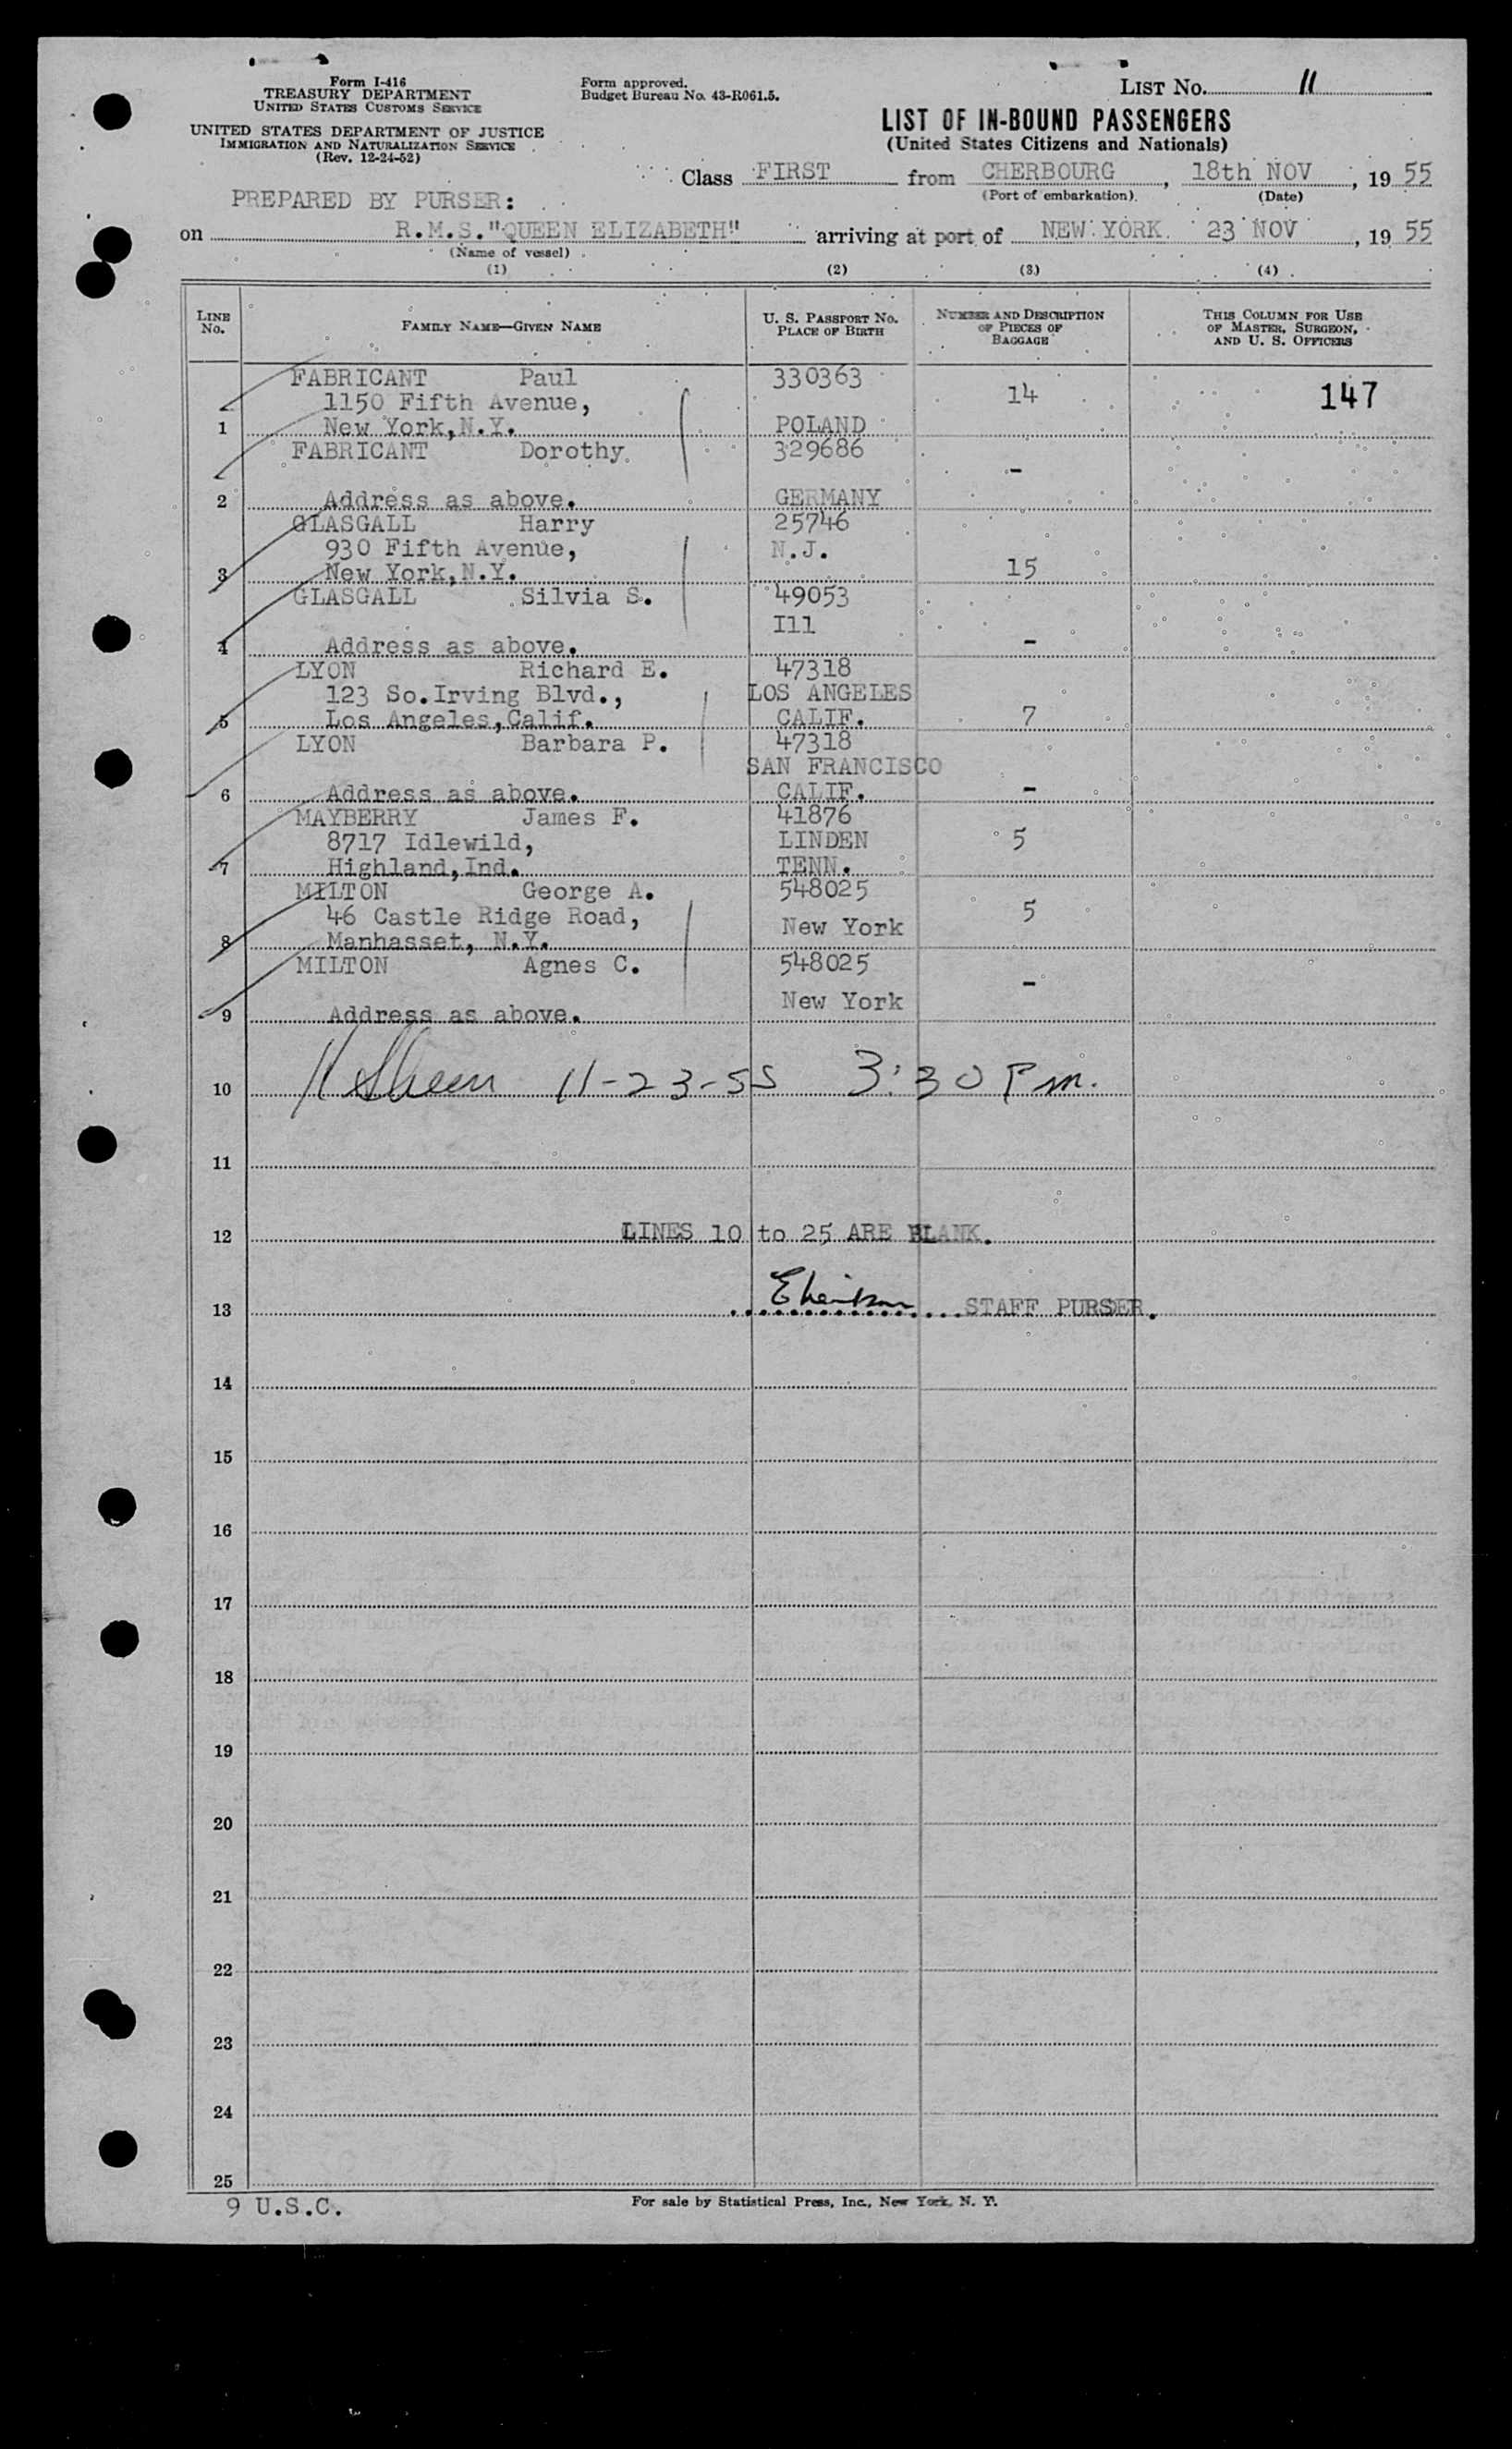 Form I-416
TREASURY DEPARTMENT
UNITED STATES CUSTOMS SERVICE
UNITED STATES DEPARTMENT OF JUSTICE
IMMIGRATION AND NATURALIZATION SERVICE
(Rev. 12-24-52)
Form approved.
Budget Bureau No. 43-R061.5.
LIST NO. 11
LIST OF IN-BOUND PASSENGERS
(United States Citizens and Nationals)
Class FIRST from CHERBOURG, 18th NOV, 19 55
(Port of embarkation) (Date)
PREPARED BY PURSER:
on R.M.S."QUEEN ELIZABETH" arriving at port of NEW YORK. 23 NOV, 19 55
(Name of vessel)
(1) (2) (3) (4)
LINE No. FAMILY NAME—GIVEN NAME U. S. PASSPORT NO. PLACE OF BIRTH NUMBER AND DESCRIPTION OF PIECES OF BAGGAGE THIS COLUMN FOR USE OF MASTER, SURGEON, AND U. S. OFFICERS
FABRICANT Paul 330363
1150 Fifth Avenue, 14 147
1 New York,N.Y. POLAND
FABRICANT Dorothy 329686
-
2 Address as above. GERMANY
GLASGALL Harry 25746
930 Fifth Avenue, N.J.
3 New York,N.Y. 15
GLASGALL Silvia S. 49053
Ill
4 Address as above. -
LYON Richard E. 47318
123 So.Irving Blvd., LOS ANGELES
5 Los Angeles,Calif. CALIF. 7
LYON Barbara P. 47318
SAN FRANCISCO
6 Address as above. CALIF. -
MAYBERRY James F. 41876
8717 Idlewild, LINDEN 5
7 Highland,Ind. TENN.
MILTON George A. 548025
46 Castle Ridge Road, New York 5
8 Manhasset, N.Y.
MILTON Agnes C. 548025
New York -
9 Address as above.
10 11-23-55 3:30 Pm.
11
12 LINES 10 to 25 ARE BLANK.
13 STAFF PURSER.
14
15
16
17
18
19
20
21
22
23
24
25
9 U.S.C.
For sale by Statistical Press, Inc., New York, N. Y.